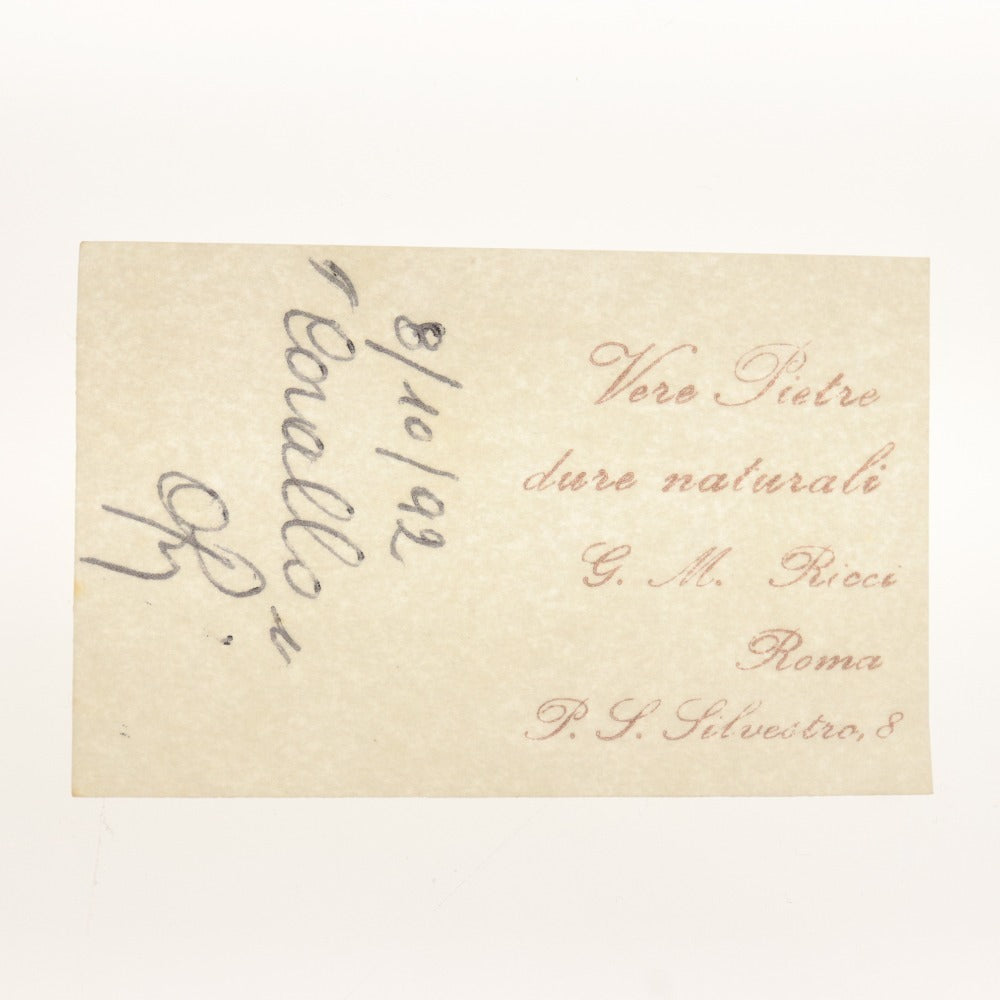 Vere Pietre
dure naturali
G. M. Ricci
Roma
P. S. Silvestro, 8
8/10/92
"Cavallo"